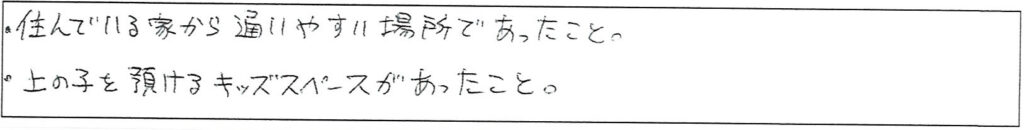 ・住んでいる家から通いやすい場所であったこと。
・上の子を預けるキッズスペースがあったこと。